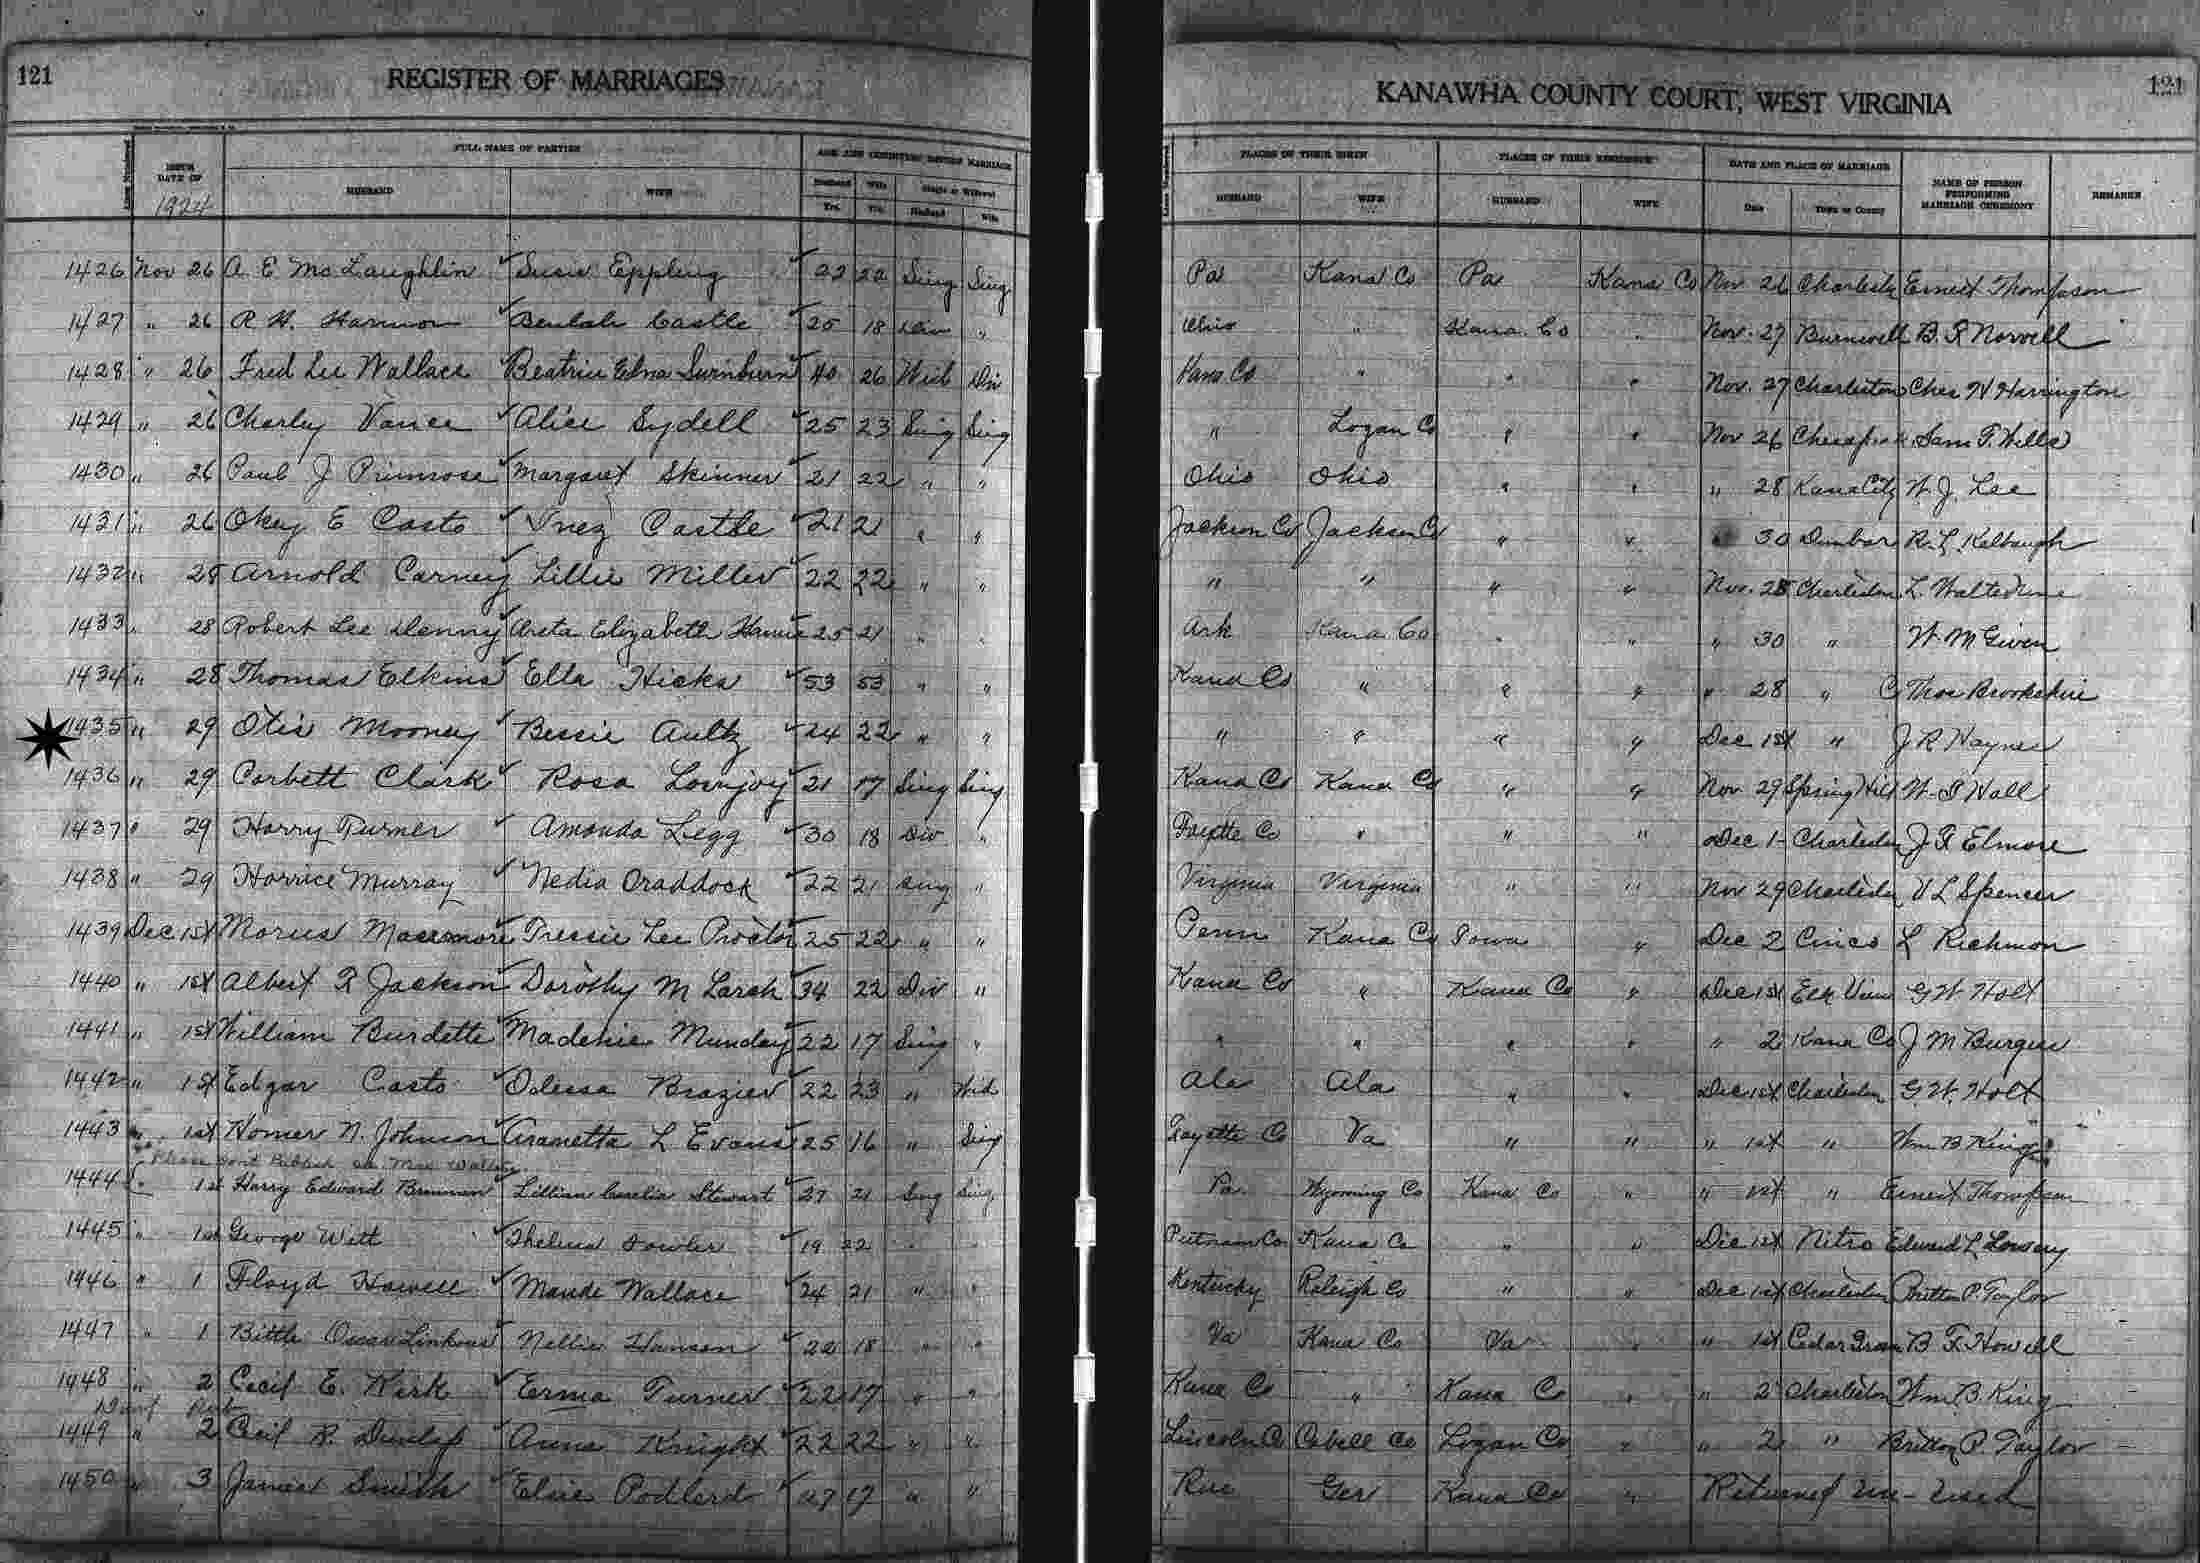 121 REGISTER OF MARRIAGES KANAWHA COUNTY COURT, WEST VIRGINIA 121
FULL NAME OF PARTIES AGE AND CONDITION BEFORE MARRIAGE PLACES OF THEIR BIRTH PLACES OF THEIR RESIDENCE DATE AND PLACE OF MARRIAGE
Lines Numbered ISSUE DATE OF HUSBAND WIFE Husband Yrs. Wife Yrs. Single or Widowed Husband Wife Lines Numbered HUSBAND WIFE HUSBAND WIFE Date Town or County NAME OF PERSON PERFORMING MARRIAGE CEREMONY REMARKS
1924
1426 Nov 26 A E McLaughlin Susie Eppling 22 20 Sing Sing Pa Kana Co Pa Kana Co Nov 26 Ernest Thompson
1427 " 26 R. H. Harmon Beulah Castle 25 18 Div " Ohio " Kana. Co " Nov. 27 Burnwell B. F. Norvell
1428 " 26 Fred Lee Wallace Beatrice Edna Swinburn 40 26 Wid Div Kana Co " " " Nov. 27 Charleston Chas N Harrington
1429 " 26 Charley Vance Alice Sydell 25 23 Sing Sing " Logan Co " " Nov 26 Sam T. Wells
1430 " 26 Paul J Primrose Margaret Skinner 21 22 " " Ohio Ohio " " " 28 Kana City W. J. Lee
1431 " 26 Okey E Casto Inez Castle 21 21 " " Jackson Co Jackson Co " " " 30 Dunbar R. L. Kelbaugh
1432 " 28 Arnold Carney Lillie Miller 22 22 " " " " " " Nov. 28 Charleston L.
1433 " 28 Robert Lee Denny Areta Elizabeth 25 21 " " Ark Kana Co " " " 30 " W. M Given
1434 " 28 Thomas Elkins Ella Hicks 53 53 " " Kana Co " " " " 28 " C Thos Brookshire
1435 " 29 Otis Mooney Bessie Aultz 24 22 " " " " " " Dec 1st " J R Haynes
1436 " 29 Corbett Clark Rosa Lovejoy 21 17 Sing Sing Kana Co Kana Co " " Nov 29 Spring Hill W. S Hall
1437 " 29 Harry Turner Amanda Legg 30 18 Div " Fayette Co " " " Dec 1- Charleston J F Elmore
1438 " 29 Horrice Murray Nedia Craddock 22 21 Sing " Virginia Virginia " " Nov 29 Charleston V L Spencer
1439 Dec 1st Morris Tressie Lee Proctor 25 22 " " Penn Kana Co Iowa " Dec 2 Cinco L Richmon
1440 " 1st Albert F Jackson Dorothy M Larch 34 22 Div " Kana Co " Kana Co " Dec 1st Elk View G W Holt
1441 " 1st William Burdette Madenie Munday 22 17 Sing " " " " " " 2 Kana Co J M Burgess
1442 " 1st Edgar Casto Odessa Brazier 22 23 " Wid Ala Ala " " Dec 1st Charleston G W. Holt
1443 " 1st Homer N. Johnson Arametta L Evans 25 16 " Sing Fayette Co Va " " " 1st " Wm B King
Please dont Publish
1444 " 1st Harry Edward Brennan Lillian Stewart 27 21 Sing Sing Pa. Wyoming Co Kana Co " " 1st " Ernest Thompson
1445 " 1st George Witt Thelma Fowler 19 22 " " Putnam Co. Kana Co " " Dec 1st Nitro Edward L Lowery
1446 " 1 Floyd Howell Maude Wallace 24 21 " " Kentucky Raleigh Co " " Dec 1st Charleston Britton P. Taylor
1447 " 1 Bittle Oscar Linkous Nellie Hanson 22 18 " " Va Kana Co Va " " 1st B F Howell
1448 " 2 Cecil E. Kirk Erma Turner 22 17 " " Kana Co " Kana Co " " 2 Charleston Wm. B. King
Dont Pub
1449 " 2 Cecil R. Dunlap Anna Knight 22 22 " " Lincoln Co Cabell Co Logan Co " " 2 " Britton P. Taylor
1450 " 3 James Smith Elsie Podlerd 27 17 " " Rus Ger Kana Co " Returned Un-Used